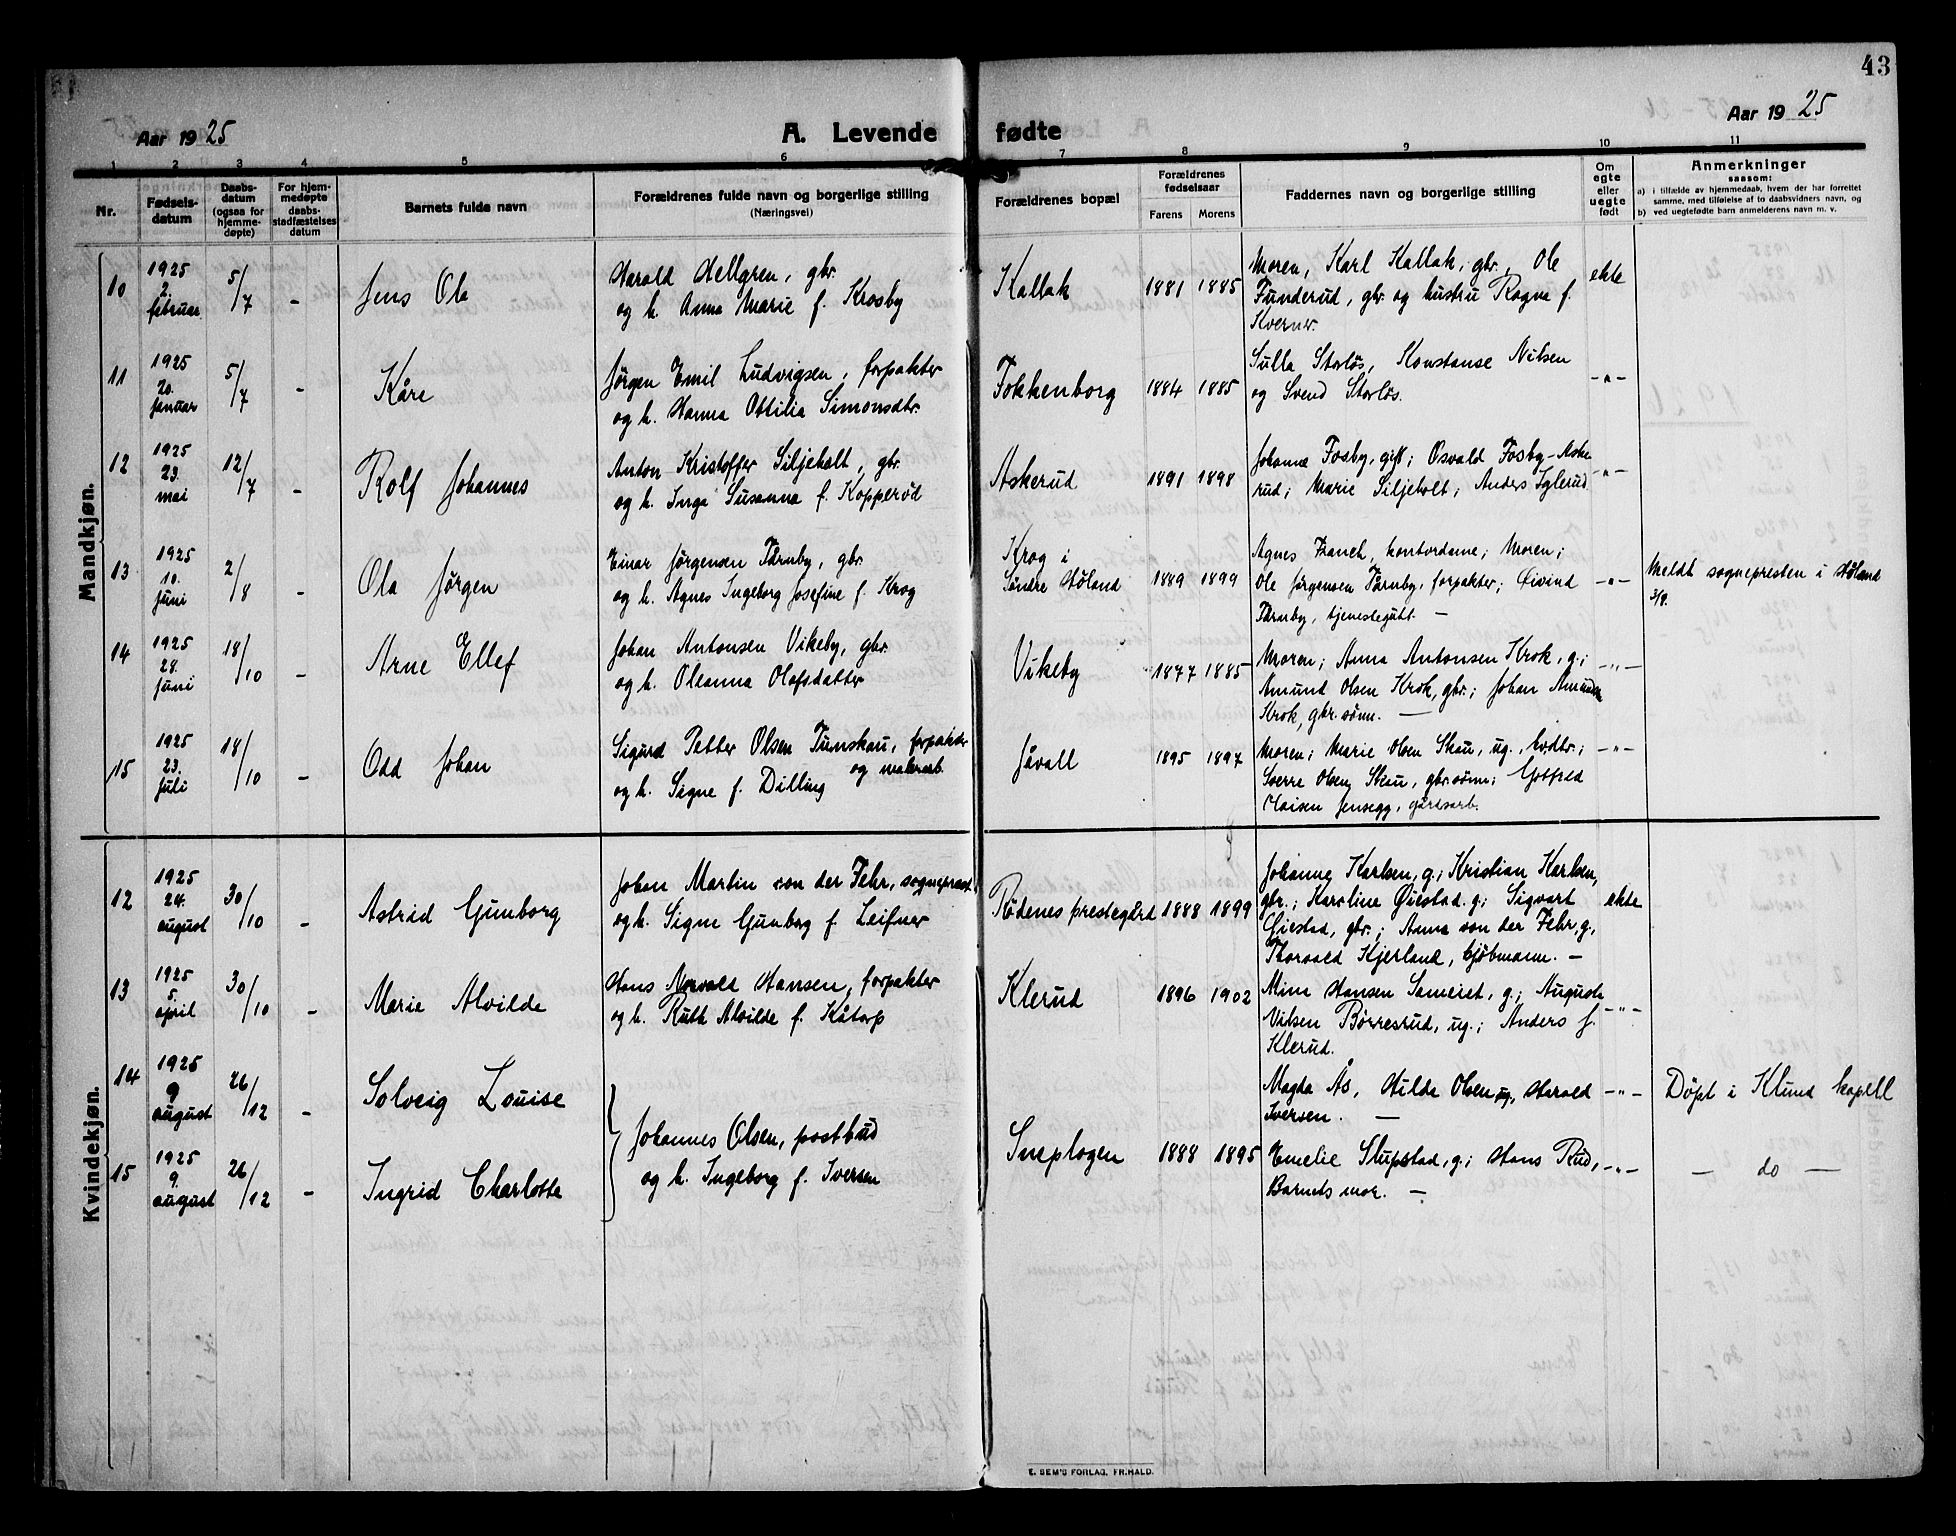 43
Aar 1925
A. Levende fødte
Aar 1925
1 2 3 4 5 6 7 8 9 10 11
Nr.
Fødsels-
datum
Daabs-
datum
(ogsaa for
hjemme-
døpte)
For hjem-
medøpte
daabs-
stadfæstelses
datum
Barnets fulde navn
Forældrenes fulde navn og borgerlige stilling
(Næringsvei)
Forældrenes bopæl
Forældrenes
fødselsaar
Farens
Morens
Faddernes navn og borgerlig stilling
Om
egte
eller
uegte
født
Anmerkninger
saasom:
a) i tilfælde av hjemmedaab, hvem der har forrettet
samme, med tilføielse af to daabsvidners navn, og
b) ved uegtefødte barn anmelderens navn m. v.
Mandkjøn.
10
1925
2.
februar
5/7
-
Jens Ola
Harald Hellgren, gbr.
og h. Anna Marie f. Krosby
Kallak
1881 1885
Moren, Karl Kallak, gbr., Ole
Funderud, gbr. og hustru Ragna f.
Kverner.
ekte
11
1925
20.
januar
5/7
-
Kåre
Jørgen Emil Ludvigsen, forpakter
og h. Hanna Ottilia Simonsdtr.
Fokkenborg
1884 1885
Sulla Storløs, Konstanse Nilsen
og Svend Storløs.
-"-
12
1925
23.
mai
12/7
-
Rolf Johannes
Anton Kristoffer Siljeholt, gbr.
og h. Inga Susanna f. Kopperød
Askerud
1891 1898
Johanne Fosby, gift; Osvald Fosby-Aske
rud; Marie Siljeholt; Anders Iglerud
-"-
13
1925
10.
juni
2/8
-
Ola Jørgen
Einar Jørgensen Tårnby, gbr.
og h. Agnes Ingeborg Josefine f. Krog
Krog i
Søndre Høland
1889 1899
Agnes Franch, kontordame; Moren;
Ole Jørgensen Tårnby, forpakter; Øivind
Tårnby, tjenestegutt. -
-"-
Meldt sognepresten i Høland
3/9.
14
1925
28.
juni
18/10
-
Arne Ellef
Johan Antonsen Vikeby, gbr.
og h. Oleanna Olafsdatter
Vikeby
1877 1885
Moren; Anna Antonsen Krok, g.;
Amund Olsen Krok, gbr.; Johan Amundsen
Krok, gbr.sønn. -
-"-
15
1925
23.
juli
18/10
-
Odd Johan
Sigurd Petter Olsen Tunskau, forpakter
og malerarb.
og h. Signe f. Dilling
Jåvall
1895 1897
Moren; Marie Olsen Skau, ug.,
Sverre Olsen Skau, gbr.sønn; Gotfred
Olaisen Jensegg, gårdsarb.
-"-
Kvindekjøn.
12
1925
24.
august
30/10
-
Astrid Gunborg
Johan Martin von der Fehr, sogneprest
og h. Signe Gunborg f. Leifner
Rødenes prestegård
1888 1899
Johanne Karlsen, g.; Kristian Karlsen,
gbr.; Karoline Øiestad. g.; Sigvart
Øiestad, gbr.; Anna von der Fehr, g,
Thorvald Kjerland, kjøbmann. -
ekte
13
1925
5.
april
30/10
-
Marie Alvilde
Hans Norvald Hansen, forpakter
og h. Ruth Alvilde f. Kåtorp
Klerud
1896 1902
Mina Hansen Sameiet, g.; Auguste
Nilsen Børresrud, ug.; Anders J.
Klerud.
-"-
14
1925
9
august
26/12
-
Solveig Louise
Johannes Olsen, postbud
og h. Ingeborg f. Iversen
Sneplogen
1888 1895
Magda Ås, Hilda Olsen ug., Harald
Iversen. -
-"-
Døpt i Klund kapell
15
1925
9.
august
26/12
-
Ingrid Charlotte
Emelie Slupstad, g.; Hans Rud,
Barnets mor. -
-"-
- do -
E. SEM'S FORLAG, FR.HALD.